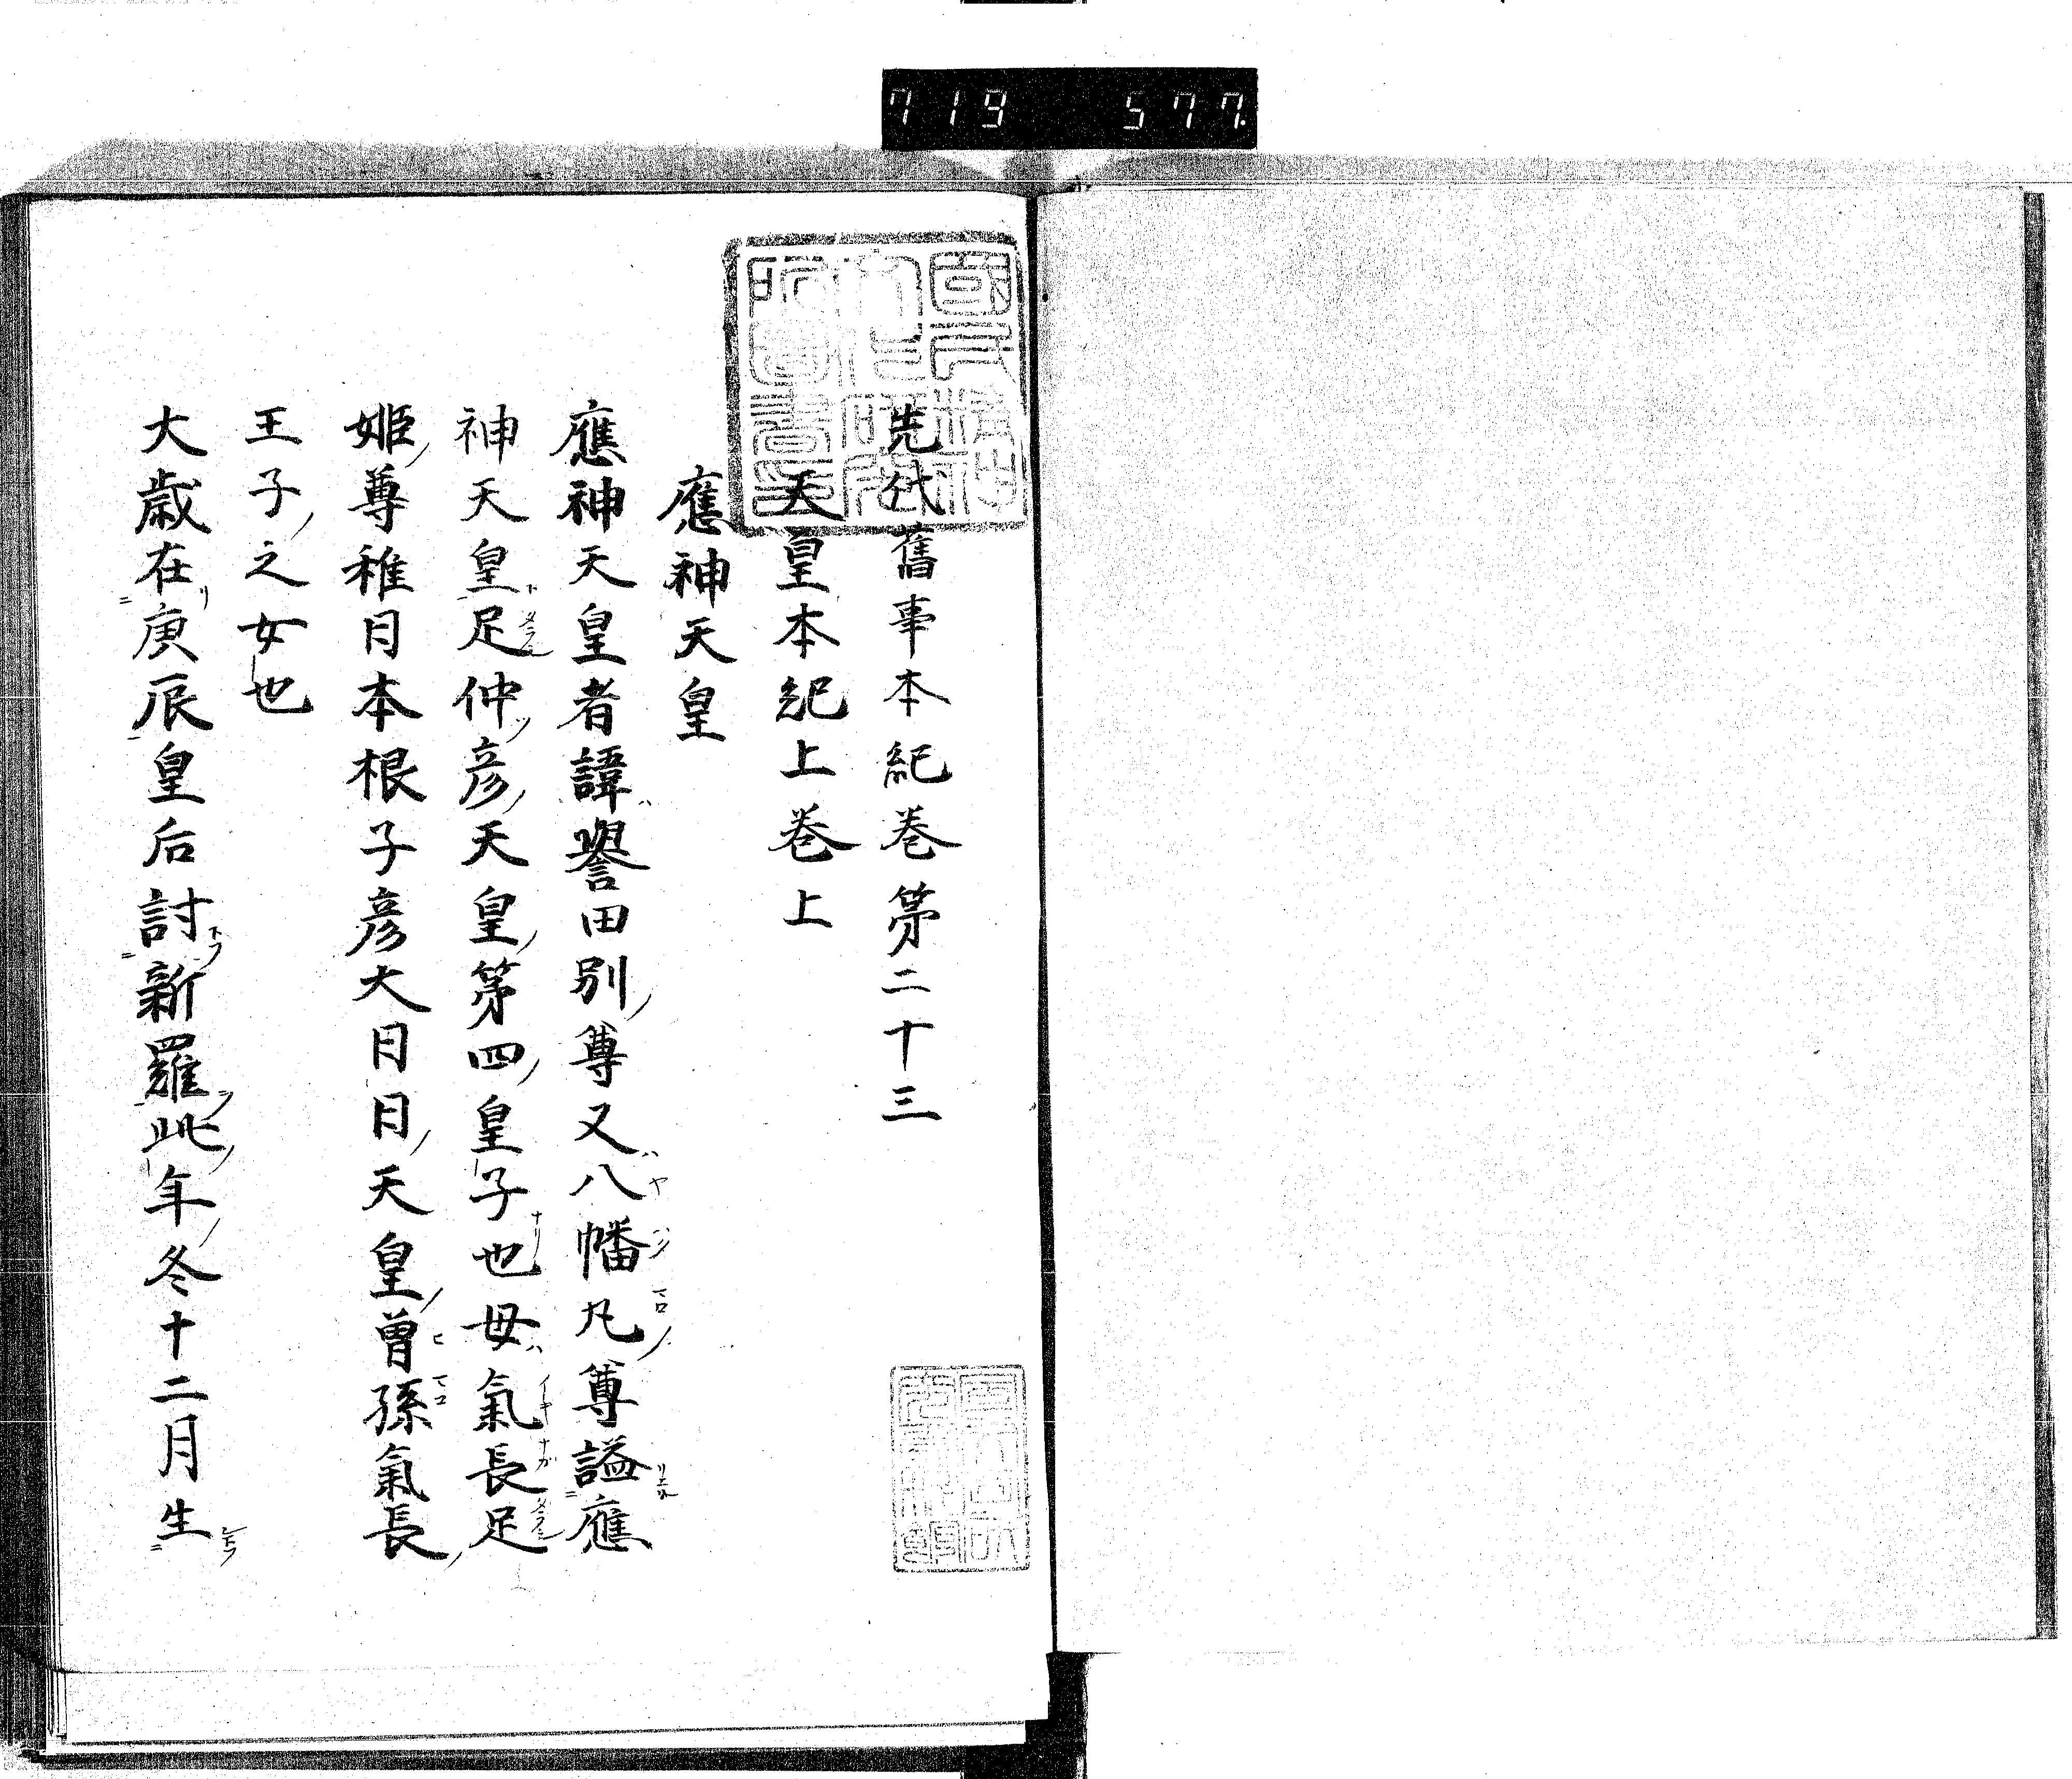 719 577.
先代舊事本紀巻第二十三
天皇本紀上巻上
應神天皇
應神天皇者諱譽田別尊又八幡凡尊謚應
神天皇足仲彦天皇第四皇子也母氣長足
姫尊稚日本根子彦大日日天皇曽孫氣長
王子之女也
大歳在庚辰皇后討新羅此年冬十二月生